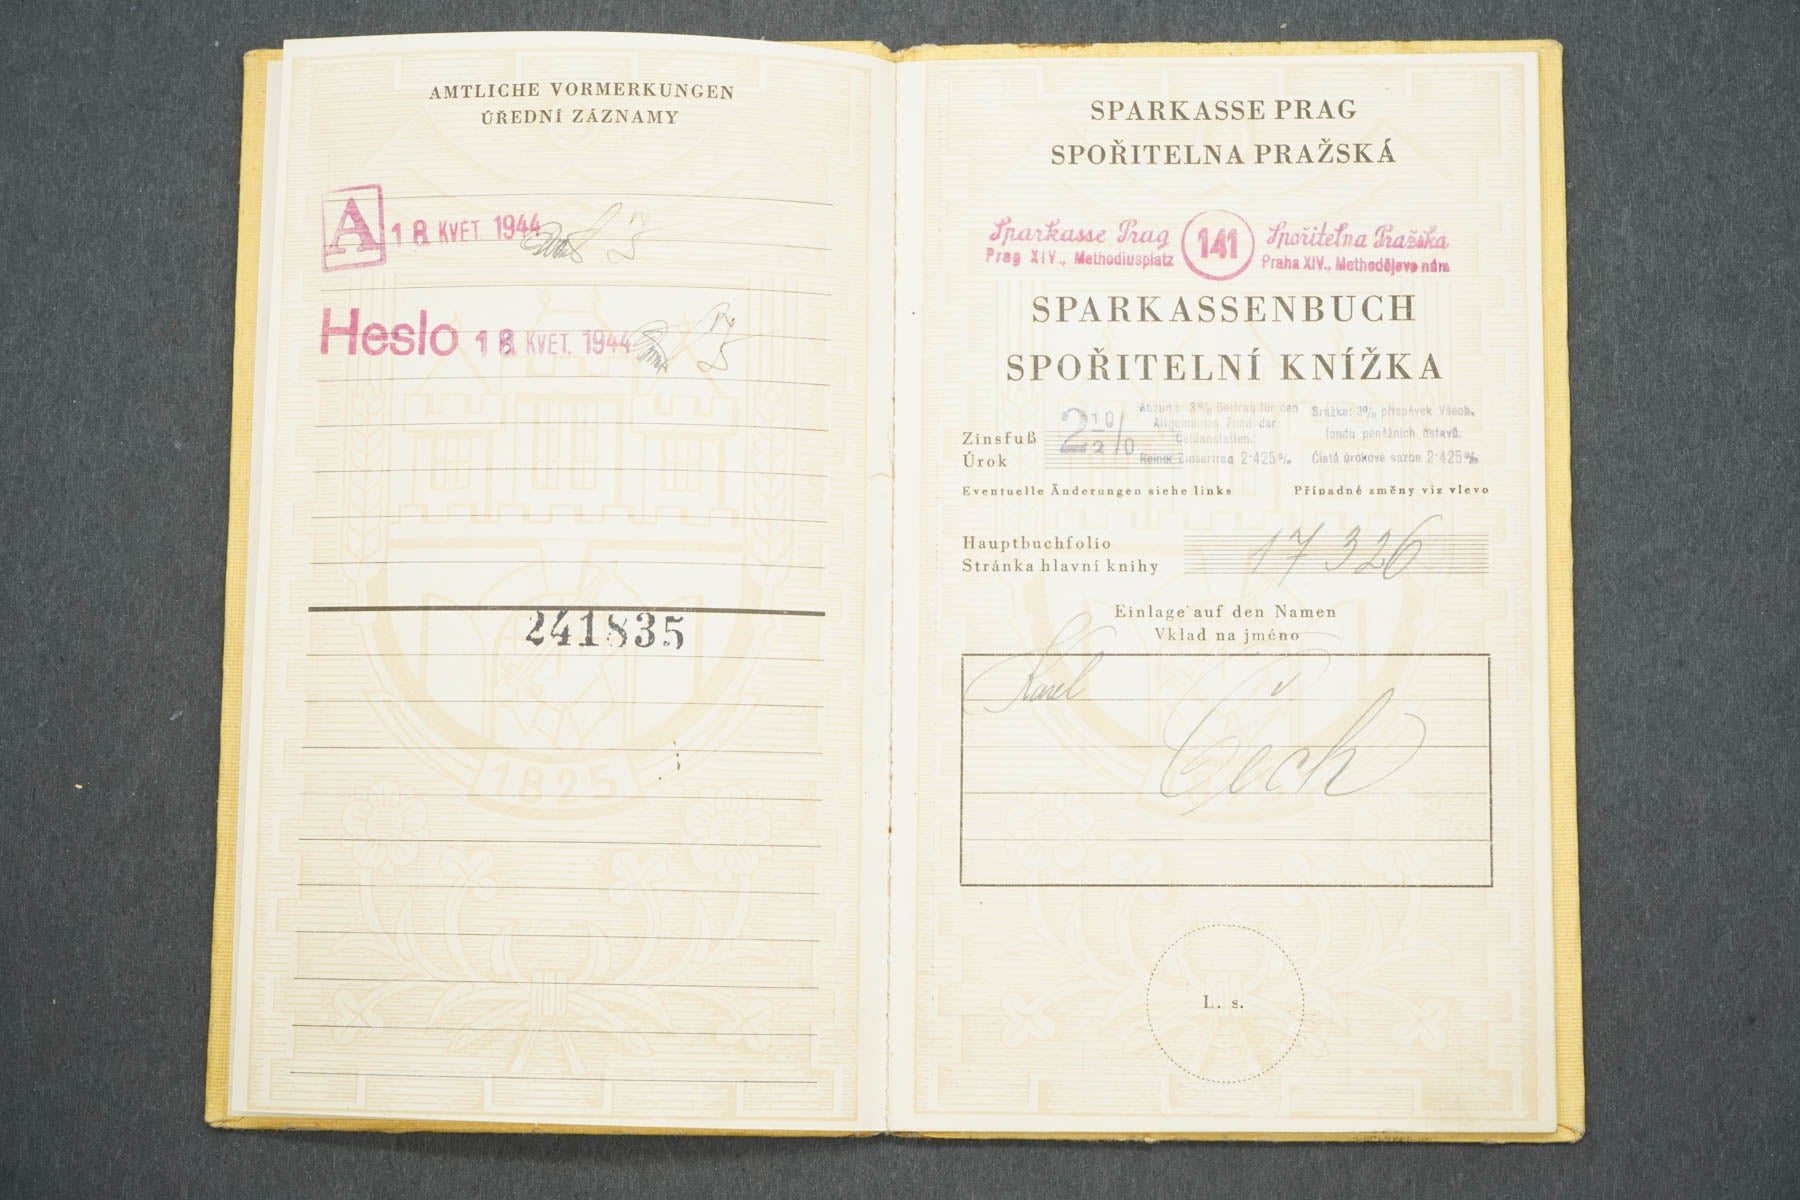 AMTLICHE VORMERKUNGEN
ÚŘEDNÍ ZÁZNAMY
A 18. KVĚT. 1944
Heslo 18. KVĚT. 1944
241835
1825
SPARKASSE PRAG
SPOŘITELNA PRAŽSKÁ
Sparkasse Prag 141 Spořitelna Pražská
Prag XIV., Methodiusplatz Praha XIV., Methodějovo nám
SPARKASSENBUCH
SPOŘITELNÍ KNÍŽKA
Abzug: 3% Beitrag für den Srážka: 3% příspěvek Všeob.
Allgemeines Fond der fondu peněžních ústavů.
Geldanstalten.
Zinsfuß 2 1/2 %
Úrok Reiner Zinsertrag 2·425% Čistá úroková sazba 2·425%
Eventuelle Änderungen siehe links Případné změny viz vlevo
Hauptbuchfolio
Stránka hlavní knihy 17326
Einlage auf den Namen
Vklad na jméno
Karel
Čech
L. s.